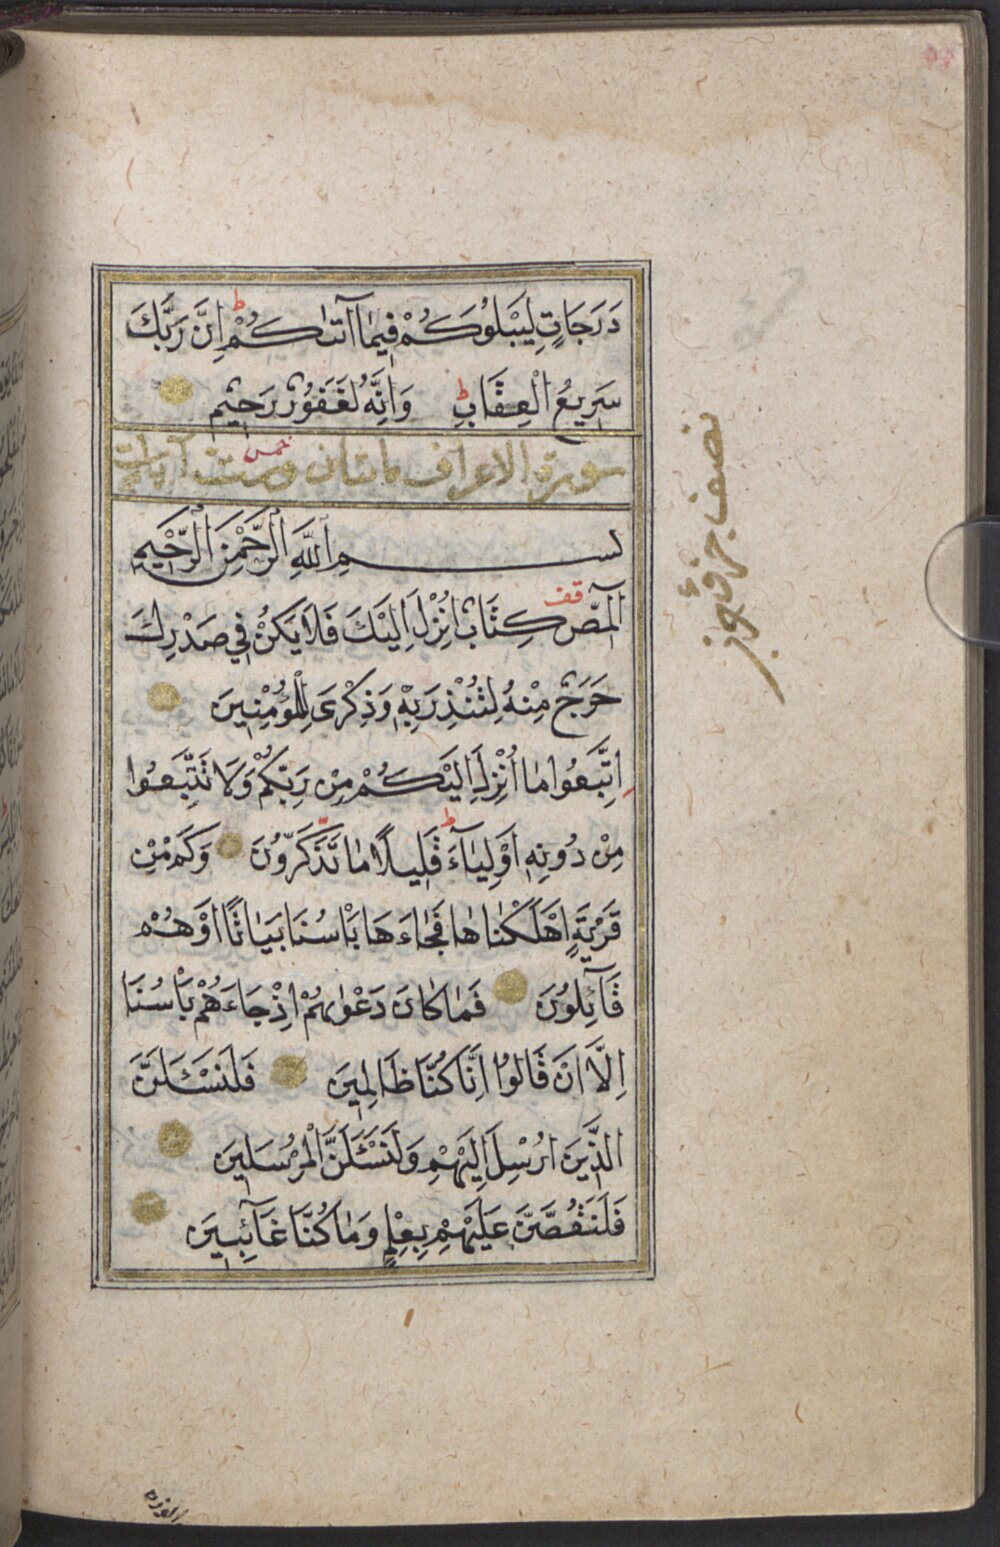 دَرَجَاتٍ لِيَبْلُوَكُمْ فِيمَا آتٰاكُمْ ط اِنَّ رَبَّكَ
سَرِيعُ الْعِقَابِ ط وَاِنَّهُ لَغَفُورٌ رَحِيمٌ
سورة الاعراف مايتان وست آيات
خمس
بِسْمِ اللّٰهِ الرَّحْمٰنِ الرَّحِيمِ
الٓمٓصٓ قف كِتَابٌ اُنْزِلَ اِلَيْكَ فَلَا يَكُنْ فِي صَدْرِكَ
حَرَجٌ مِنْهُ لِتُنْذِرَ بِهِ وَذِكْرٰى لِلْمُؤْمِنِينَ
اِتَّبِعُوا مٰا اُنْزِلَ اِلَيْكُمْ مِنْ رَبِّكُمْ وَلَا تَتَّبِعُوا
مِنْ دُونِهِ اَوْلِيٰآءَ ط قَلِيلًا مٰا تَذَكَّرُونَ وَكَمْ مِنْ
قَرْيَةٍ اَهْلَكْنٰاهٰا فَجٰاءَهَا بَاْسُنَا بَيٰاتًا اَوْ هُمْ
قَآئِلُونَ فَمٰا كَانَ دَعْوٰيهُمْ اِذْ جَاءَهُمْ بَاْسُنَا
اِلَّا اَنْ قَالُوا اِنَّا كُنَّا ظَالِمِينَ فَلَنَسْـَٔلَنَّ
الَّذِينَ اُرْسِلَ اِلَيْهِمْ وَلَنَسْـَٔلَنَّ الْمُرْسَلِينَ
فَلَنَقُصَّنَّ عَلَيْهِمْ بِعِلْمٍ وَمٰا كُنَّا غَآئِبِينَ
نصف جزؤ
والوزن